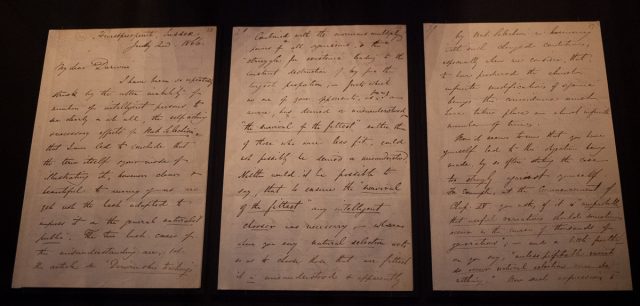 Hurstpierpoint, Sussex
July 2nd 1866.
My dear Darwin
I have been so repeatedly
struck by the utter inability of
number of intelligent persons to
see clearly or at all, the self acting
necessary effects of Nat Selection,
that I am led to conclude that
the term itself & your mode of
illustrating it, however clear &
beautiful to many of us are
yet not the best adapted to
impress it on the general naturalist
public. The two last cases of
this misunderstanding are, 1st
the article on "Darwin & his teachings
Combined with the enormous multiplying
powers of all organisms, & the
struggle for existence leading to the
constant destruction of by far the
largest proportion,— facts which
no one of your opponents, as far as I am
aware, has denied or misunderstood,—
"the survival of the fittest" rather than
of those who were less fit, could
not possibly be denied or misunderstood.
Neither would it be possible to
say, that to ensure the "survival
of the fittest" any intelligent
chooser was necessary,— whereas
when you say natural selection acts
so as to choose those that are fittest
it is misunderstood & apparently
by Nat. Selection in harmony
with such changed conditions,
especially when we consider, that
to have produced the
infinite modifications of
beings this must
have taken place an almost infinite
number of times.
It seems to me that you have
yourself led to this objection being
made, by so often stating the case
too strongly against yourself.
For example, at the Commencement of
Chap. IV. you ask, if it is "improbable
that useful variations should sometimes
occur in the course of thousands of
generations";— and a little further
on you say, "unless profitable variations
do occur natural selection can do
nothing." Now such expressions